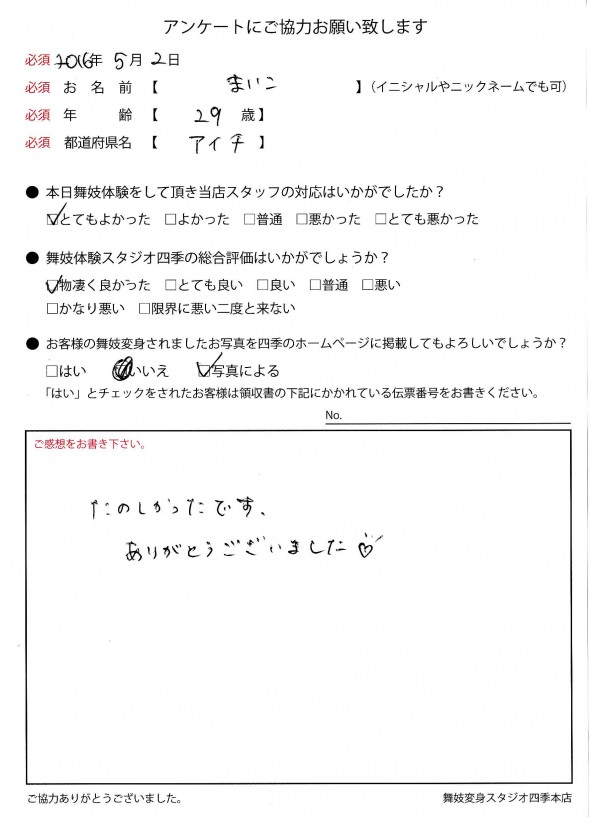 アンケートにご協力お願い致します
必須 2016年 5月 2日
必須 お名前 【 まいこ 】（イニシャルやニックネームでも可）
必須 年齢 【 29 歳】
必須 都道府県名 【 アイチ 】
● 本日舞妓体験をして頂き当店スタッフの対応はいかがでしたか？
☑とてもよかった □よかった □普通 □悪かった □とても悪かった
● 舞妓体験スタジオ四季の総合評価はいかがでしょうか？
☑物凄く良かった □とても良い □良い □普通 □悪い
□かなり悪い □限界に悪い二度と来ない
● お客様の舞妓変身されましたお写真を四季のホームページに掲載してもよろしいでしょうか？
□はい いいえ ☑写真による
「はい」とチェックをされたお客様は領収書の下記にかかれている伝票番号をお書きください。
No.
ご感想をお書き下さい。
たのしかったです、
ありがとうございました♡
ご協力ありがとうございました。 舞妓変身スタジオ四季本店